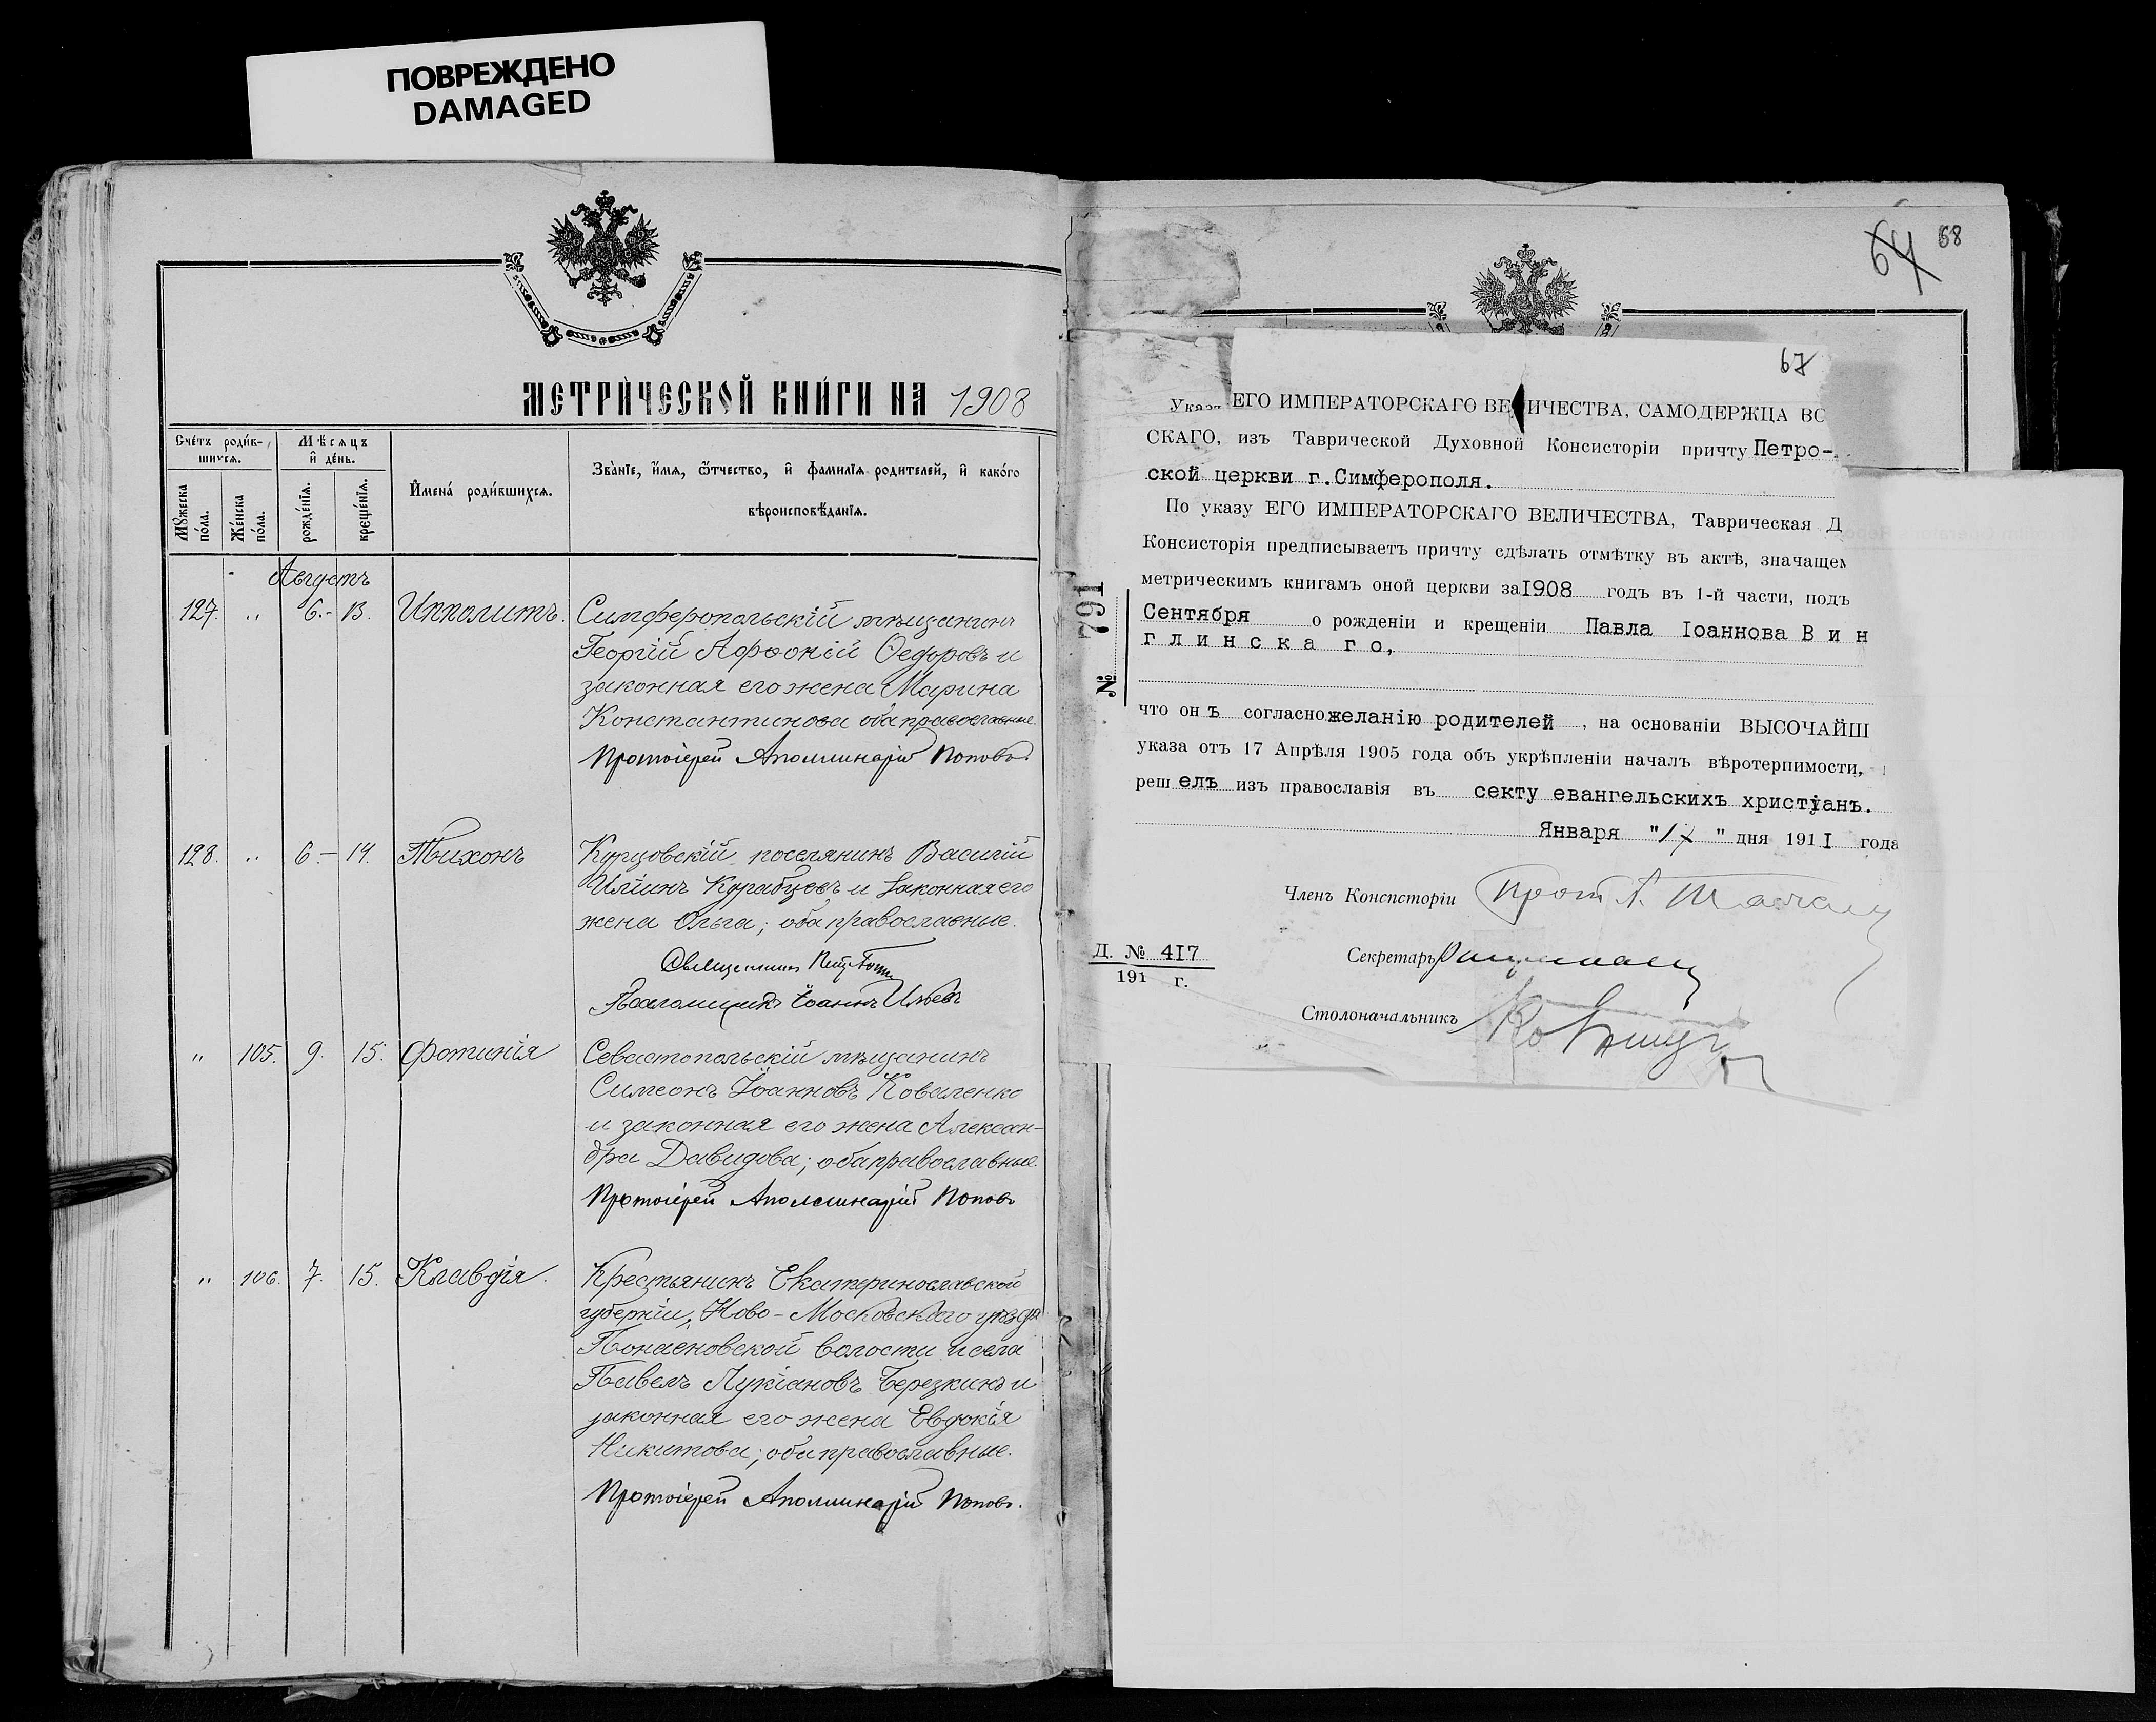 ПОВРЕЖДЕНО
DAMAGED
МЕТРИ́ЧЕСКОЙ КНИ́ГИ НА 1908
Счéтъ роди́в-
шихся.
Мѣсяцъ
и҆ дéнь.
Мꙋжеска
по́ла.
Же́нска
по́ла.
рождéнїѧ.
крещéнїѧ.
И҆мена́ роди́вшихся.
Зва́нїе, и҆́мѧ, ѻ҆́тчество, и҆ фамилїѧ родителей, и҆ како́го
вѣроисповѣ́данїѧ.
Августъ
127. " 6.- 13. Ипполитъ. Симферопольскій мѣщанинъ
Георгій Ѳедоровъ и
законная его жена Марина
Константинова оба православные.
Протоіерей Аполлинарій Поповъ.
128. " 6.- 14. Тихонъ Курцовскій поселянинъ Василій
Иліинъ Курабцевъ и законная его
жена Ольга; оба православные.
Священникъ
Псаломщикъ Іоаннъ
" 105. 9. 15. Фотинія Севастопольскій мѣщанинъ
Симеонъ Іоанновъ Коваленко
и законная его жена Алексан-
дра Давидова; оба православные.
Протоіерей Аполлинарій Поповъ
" 106. 7. 15. Клавдія. Крестьянинъ Екатеринославской
губерніи, Ново-Московскаго уѣзда
волости и села
Павелъ Лукіановъ Березкинъ и
законная его жена Евдокія
Никитова; оба православные.
Протоіерей Аполлинарій Поповъ.
64 68
67
Указъ ЕГО ИМПЕРАТОРСКАГО ВЕЛИЧЕСТВА, САМОДЕРЖЦА ВС
СКАГО, изъ Таврической Духовной Консисторіи причту Петро-
ской церкви г.Симферополя.
По указу ЕГО ИМПЕРАТОРСКАГО ВЕЛИЧЕСТВА, Таврическая Д
Консисторія предписываетъ причту сдѣлать отмѣтку въ актѣ, значащем
метрическимъ книгамъ оной церкви за 1908 годъ въ 1-й части, подъ
Сентября о рожденіи и крещеніи Павла Іоаннова В и н
г л и н с к а г о,
№ 791
что онъ согласно желанію родителей, на основаніи ВЫСОЧАЙШ
указа отъ 17 Апрѣля 1905 года объ укрѣпленіи началъ вѣротерпимости,
решелъ изъ православія въ секту евангельскихъ христіанъ.
Января "17" дня 1911 года
Членъ Консисторіи Прот. А.
Д. № 417
191 г.
Секретарь
Столоначальникъ